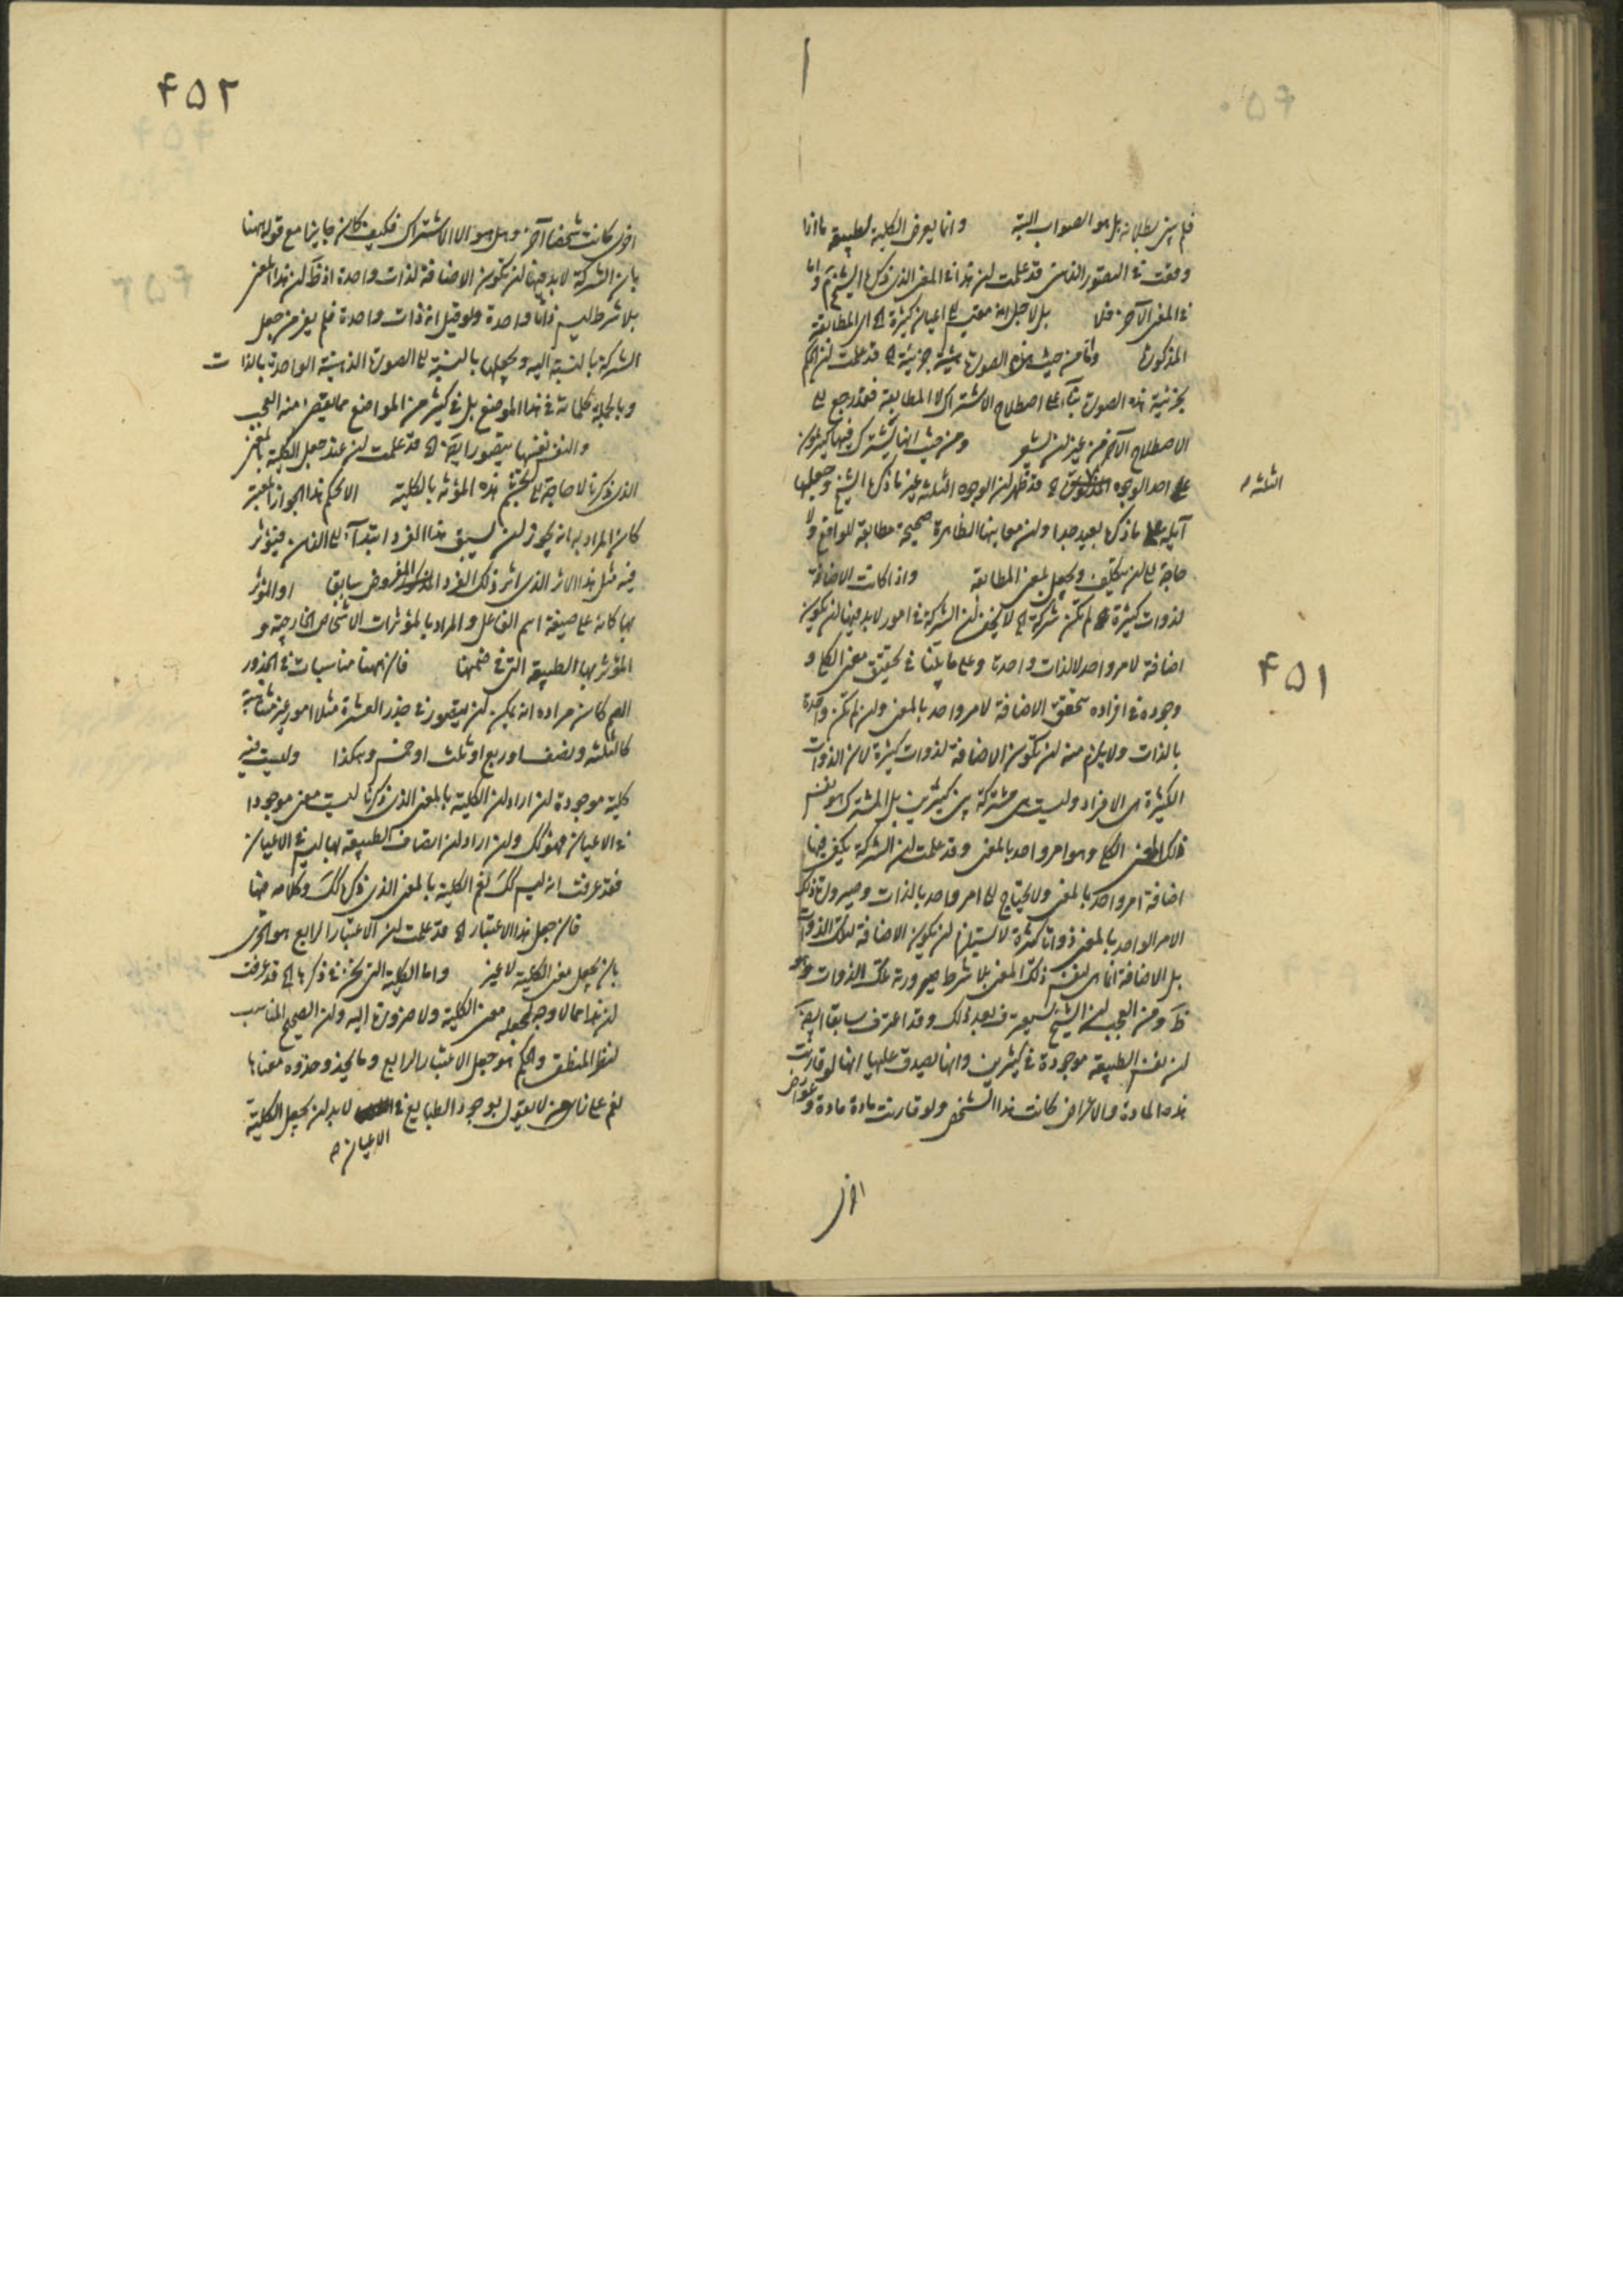 فلم يبين بطلانه بل هو الصواب البتة وانما يعرض الكلية لطبيعة ما اذا
وقعت في التصور الذهنى قد علمت ان هذا في المعنى الذى ذكره الشيخ تم واما
في المعنى الآخر فلا بل لاجل انه مقيس الى اعيان كثيرة الخ اى المطابقة
المذكورة واما من حيث هذه الصورة هيئة جزئية الخ قد علمت ان الحكم
بجزئية هذه الصورة بناء على اصطلاح الاشتراك لا المطابقة فقد رجع الى
الاصطلاح الآخر من غير ان يشعر ومن حيث انها يشترك فيها كثيرون
على احد الوجوه الخ قد ظهر ان الوجوه الثلثة غير ما ذكره الشيخ وجعلها
الثلثه
آيلة الى ما ذكره بعيد جدا وان معانيها الظاهرة صحيحة مطابقة للواقع ولا
حاجة الى ان يتكلف ويجعل بمعنى المطابقة واذا كانت الاضافة
لذوات كثيرة لم تكن شركة الخ لا يخفى ان الشركة في امور لابد فيها ان يكون
۴۵۱
اضافة لامر واحد لا لذات واحدة وعلى ما بينا في تحقيق معنى الكلى و
وجوده في افراده تتحقق الاضافة لامر واحد بالمعنى وان لم تكن واحدة
بالذات ولا يلزم منه ان تكون الاضافة لذوات كثيرة لان الذوات
الكثيرة هى الافراد وليست هى مشتركة بين كثيرين بل المشترك هو نفس
ذلك المعنى الكلى وهو امر واحد بالمعنى وقد علمت ان الشركة يكفى فيها
اضافة امر واحد بالمعنى ولا يحتاج الى امر واحد بالذات وصيرورة ذلك
الامر الواحد بالمعنى ذواتا كثيرة لا يستلزم ان يكون الاضافة لتلك الذوات
بل الاضافة انما هى لنفس ذلك المعنى بلا شرط صيرورته تلك الذوات وهو
ظ ومن العجب ان الشيخ سيعترف بعد ذلك وقد اعترف سابقا ايضا
ان نفس الطبيعة موجودة في كثيرين وانها يصدق عليها انها لو قارنت
هذه المادة والاعراض كانت هذا الشخص ولو قارنت مادة مادة وعوارض
اخرى
۴۵۲
اخرى كانت شخصا آخر وهل هو الا الاشتراك فكيف كان جايزا مع قوله ههنا
بان الشركة لابد فيها ان يكون الاضافة لذات واحدة اذ ظ ان هذا المعنى
بلا شرط ليس ذاتا واحدة ولو قيل انه ذات واحدة فلم يفر من جعل
الشركة بالنسبة اليه ويجعلها بالنسبة الى الصورة الذهنية الواحدة بالذات
وبالجملة كلماته في هذا الموضع بل في كثير من المواضع مما يقضى منه العجب
والنفس نفسها يتصور ايضا الخ قد علمت ان عند جعل الكلية بالمعنى
الذى ذكرنا لا حاجة الى تجشم هذه المؤنة بالكلية الا بحكم هذا الجواز المعتبر
كان المراد به انه يجوز ان يسبق هذا الفرد ابتداء الى الذهن فيؤثر
فيه مثل هذا الاثر الذى اثر ذلك الفرد المفروض سابقا او المؤثر
بها كانه على صيغة اسم الفاعل والمراد بالمؤثرات الاشخاص الخارجية و
المؤثر بها الطبيعة التى في ضمنها فان ههنا مناسبات في الجذور
الصم كان مراده انه يمكن ان يتصور في جذر العشرة مثلا امور غير متناهية
كالثلثه ونصف او ربع او ثلث او خمس وهكذا وليست
كلية موجودة ان اراد ان الكلية بالمعنى الذى ذكرنا ليست معنى موجودا
في الاعيان فهو كك وان اراد ان اتصاف الطبيعة بها ليس في الاعيان
فقد عرفت انه ليس كك نعم الكلية بالمعنى الذى ذكره كك وكلامه فيها
فان جعل هذا الاعتبار الخ قد علمت ان الاعتبار الرابع هو الحرى
بان يجعل معنى الكلية لا غير واما الكلية التى نحن في ذكرها الخ قد عرفت
ان هذا مما لا وجه لجعله معنى الكلية ولا ضرورة اليه وان الصحيح المناسب
لنظر المنطقى والحكيم هو جعل الاعتبار الرابع وما يحذو حذوه معناها
نعم على من لا يقول بوجود الطبايع في الاعيان لابد ان يجعل الكلية